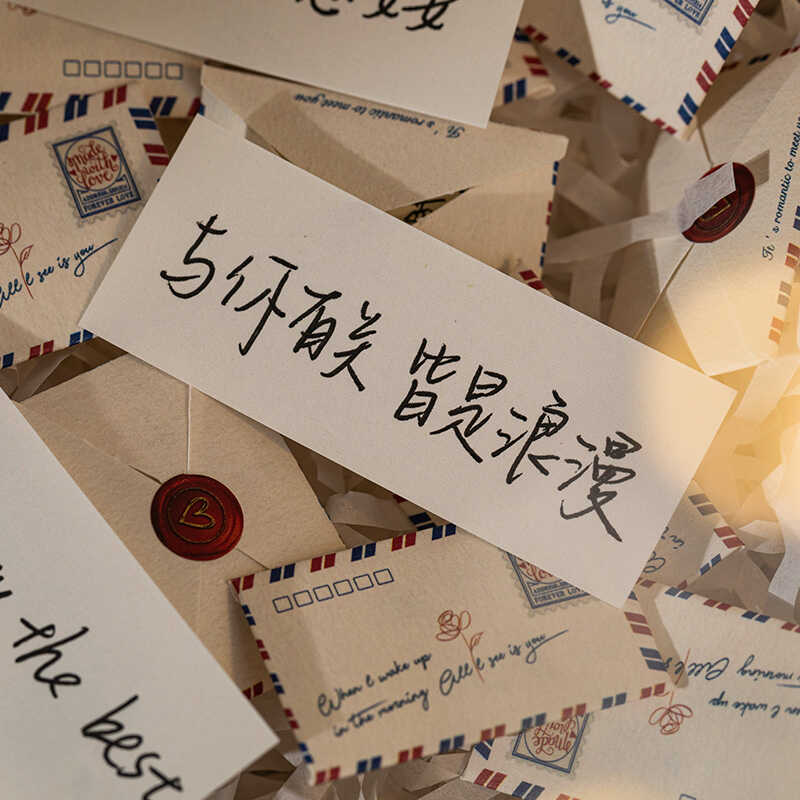 It's romantic to meet you
made with love
FOREVER LOVE
It's romantic to meet you
All I see is you
与你有关 皆是浪漫
When I wake up
in the morning All I see is you
the best
made with
When I wake up
morning All I